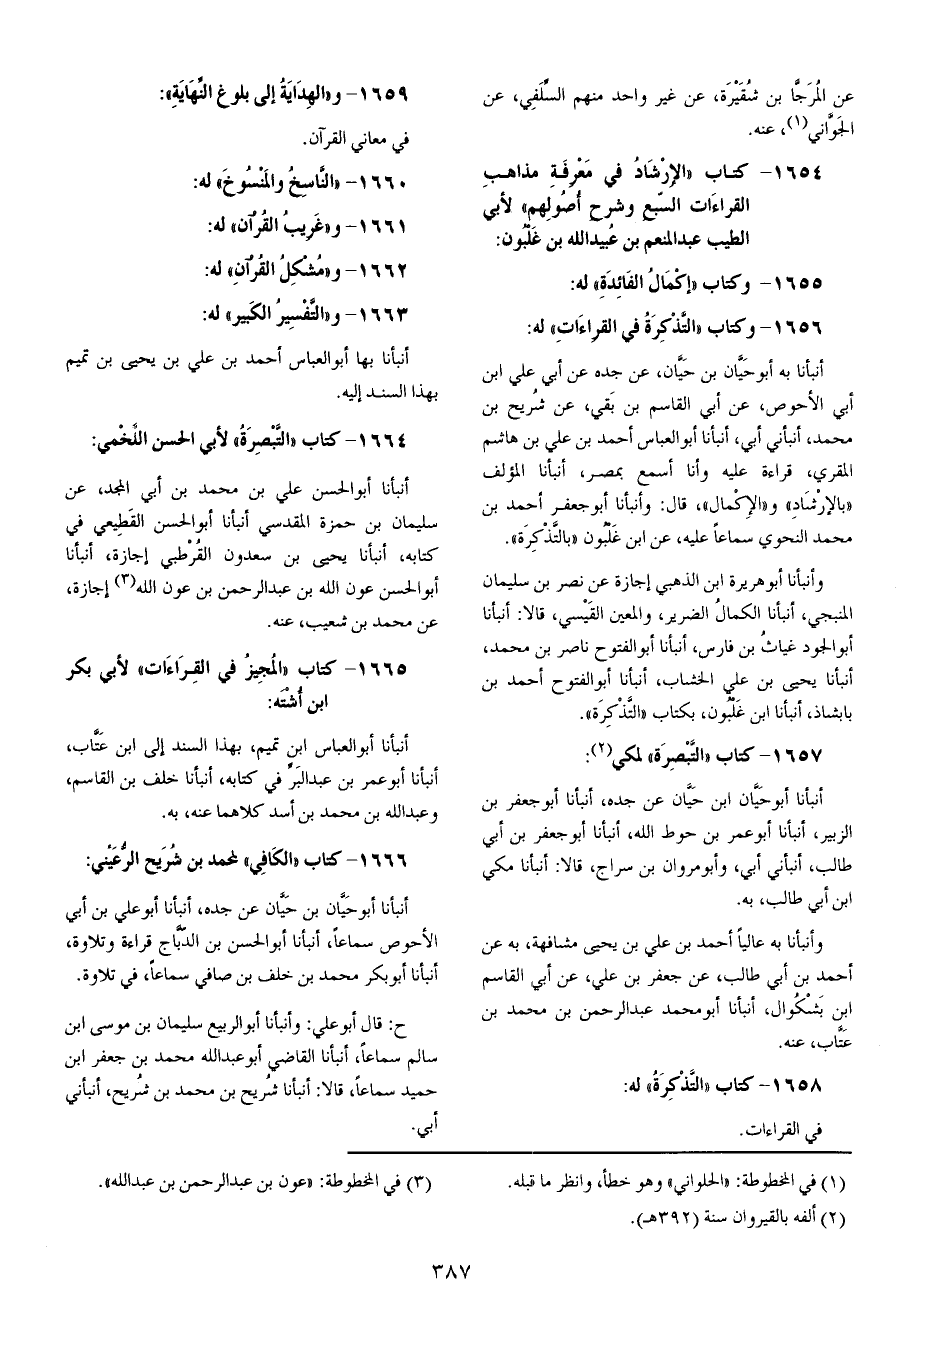 عن المُرَجَّا بن شُقَيْرَة، عن غير واحد منهم السِّلَفي، عن
الجَوَّاني(١)، عنه.
١٦٥٤- كتاب «الإرْشَادُ في مَعْرِفَةِ مذاهب
القراءَات السّبع وشرح أُصُولهم» لأبي
الطيب عبدالمنعم بن عُبيدالله بن غَلْبُون:
١٦٥٥- وكتاب «إكْمَالُ الفَائِدَةِ» له:
١٦٥٦- وكتاب «التَّذْكِرَةُ في القراءَاتِ» له:
أنبأنا به أبوحَيَّان بن حَيَّان، عن جده عن أبي علي ابن
أبي الأحوص، عن أبي القاسم بن بَقي، عن شُريح بن
محمد، أنبأني أبي، أنبأنا أبوالعباس أحمد بن علي بن هاشم
المقري، قراءة عليه وأنا أسمع بمصر، أنبأنا المؤلف
«بالإرْشَادِ» و«الإكْمال»، قال: وأنبأنا أبوجعفر أحمد بن
محمد النحوي سماعاً عليه، عن ابن غَلْبُون «بالتَّذْكِرَة».
وأنبأنا أبوهريرة ابن الذهبي إجازة عن نصر بن سليمان
المنبجي، أنبأنا الكمالُ الضرير، والمعين القَيْسي، قالا: أنبأنا
أبوالجود غياثُ بن فارس، أنبأنا أبوالفتوح ناصر بن محمد،
أنبأنا يحيى بن علي الخشاب، أنبأنا أبوالفتوح أحمد بن
بابشاذ، أنبأنا ابن غَلْبُون، بكتاب «التَّذْكِرَة».
١٦٥٧- كتاب «التَّبْصِرَة» لمكي(٢):
أنبأنا أبوحَيَّان ابن حَيَّان عن جده، أنبأنا أبوجعفر بن
الزبير، أنبأنا أبوعمر بن حوط الله، أنبأنا أبوجعفر بن أبي
طالب، أنبأني أبي، وأبومروان بن سراج، قالا: أنبأنا مكي
ابن أبي طالب، به.
وأنبأنا به عالياً أحمد بن علي بن يحيى مشافهة، به عن
أحمد بن أبي طالب، عن جعفر بن علي، عن أبي القاسم
ابن بَشْكُوال، أنبأنا أبومحمد عبدالرحمن بن محمد بن
عتَّاب، عنه.
١٦٥٨- كتاب «التَّذْكِرَةُ» له:
في القراءات.
١٦٥٩- و«الهِدَايَةُ إلى بلوغ النِّهَايَةِ»:
في معاني القرآن.
١٦٦٠- «النَّاسِخُ والمَنْسُوخَ» له:
١٦٦١- و«غَرِيبُ القُرْآن» له:
١٦٦٢- و«مُشْكِلُ القُرْآنِ» له:
١٦٦٣- و«التَّفْسِيرُ الكَبير» له:
أنبأنا بها أبوالعباس أحمد بن علي بن يحيى بن تميم
بهذا السند إليه.
١٦٦٤- كتاب «التَّبْصِرَةُ» لأبي الحسن اللَّخْمي:
أنبأنا أبوالحسن علي بن محمد بن أبي المجد، عن
سليمان بن حمزة المقدسي أنبأنا أبوالحسن القَطِيعي في
كتابه، أنبأنا يحيى بن سعدون القُرْطبي إجازة، أنبأنا
أبوالحسن عون الله بن عبدالرحمن بن عون الله(٣) إجازة،
عن محمد بن شعيب، عنه.
١٦٦٥- كتاب «المُجِيزُ في القِرَاءَات» لأبي بكر
ابن أُشْتَه:
أنبأنا أبوالعباس ابن تميم، بهذا السند إلى ابن عتَّاب،
أنبأنا أبوعمر بن عبدالبَرِّ في كتابه، أنبأنا خلف بن القاسم،
وعبدالله بن محمد بن أسد كلاهما عنه، به.
١٦٦٦- كتاب «الكَافِي» لمحمد بن شُرَيح الرُّعَيْني:
أنبأنا أبوحَيَّان بن حَيَّان عن جده، أنبأنا أبوعلي بن أبي
الأحوص سماعاً، أنبأنا أبوالحسن بن الدَّبَّاج قراءة وتلاوة،
أنبأنا أبوبكر محمد بن خلف بن صافي سماعاً، في تلاوة.
ح: قال أبوعلي: وأنبأنا أبوالربيع سليمان بن موسى ابن
سالم سماعاً، أنبأنا القاضي أبوعبدالله محمد بن جعفر ابن
حميد سماعاً، قالا: أنبأنا شُريح بن محمد بن شُريح، أنبأني
أبي.
(١) في المخطوطة: «الحلواني» وهو خطأ، وانظر ما قبله.
(٢) ألفه بالقيروان سنة (٣٩٢هـ).
(٣) في المخطوطة: «عون بن عبدالرحمن بن عبدالله».
٣٨٧